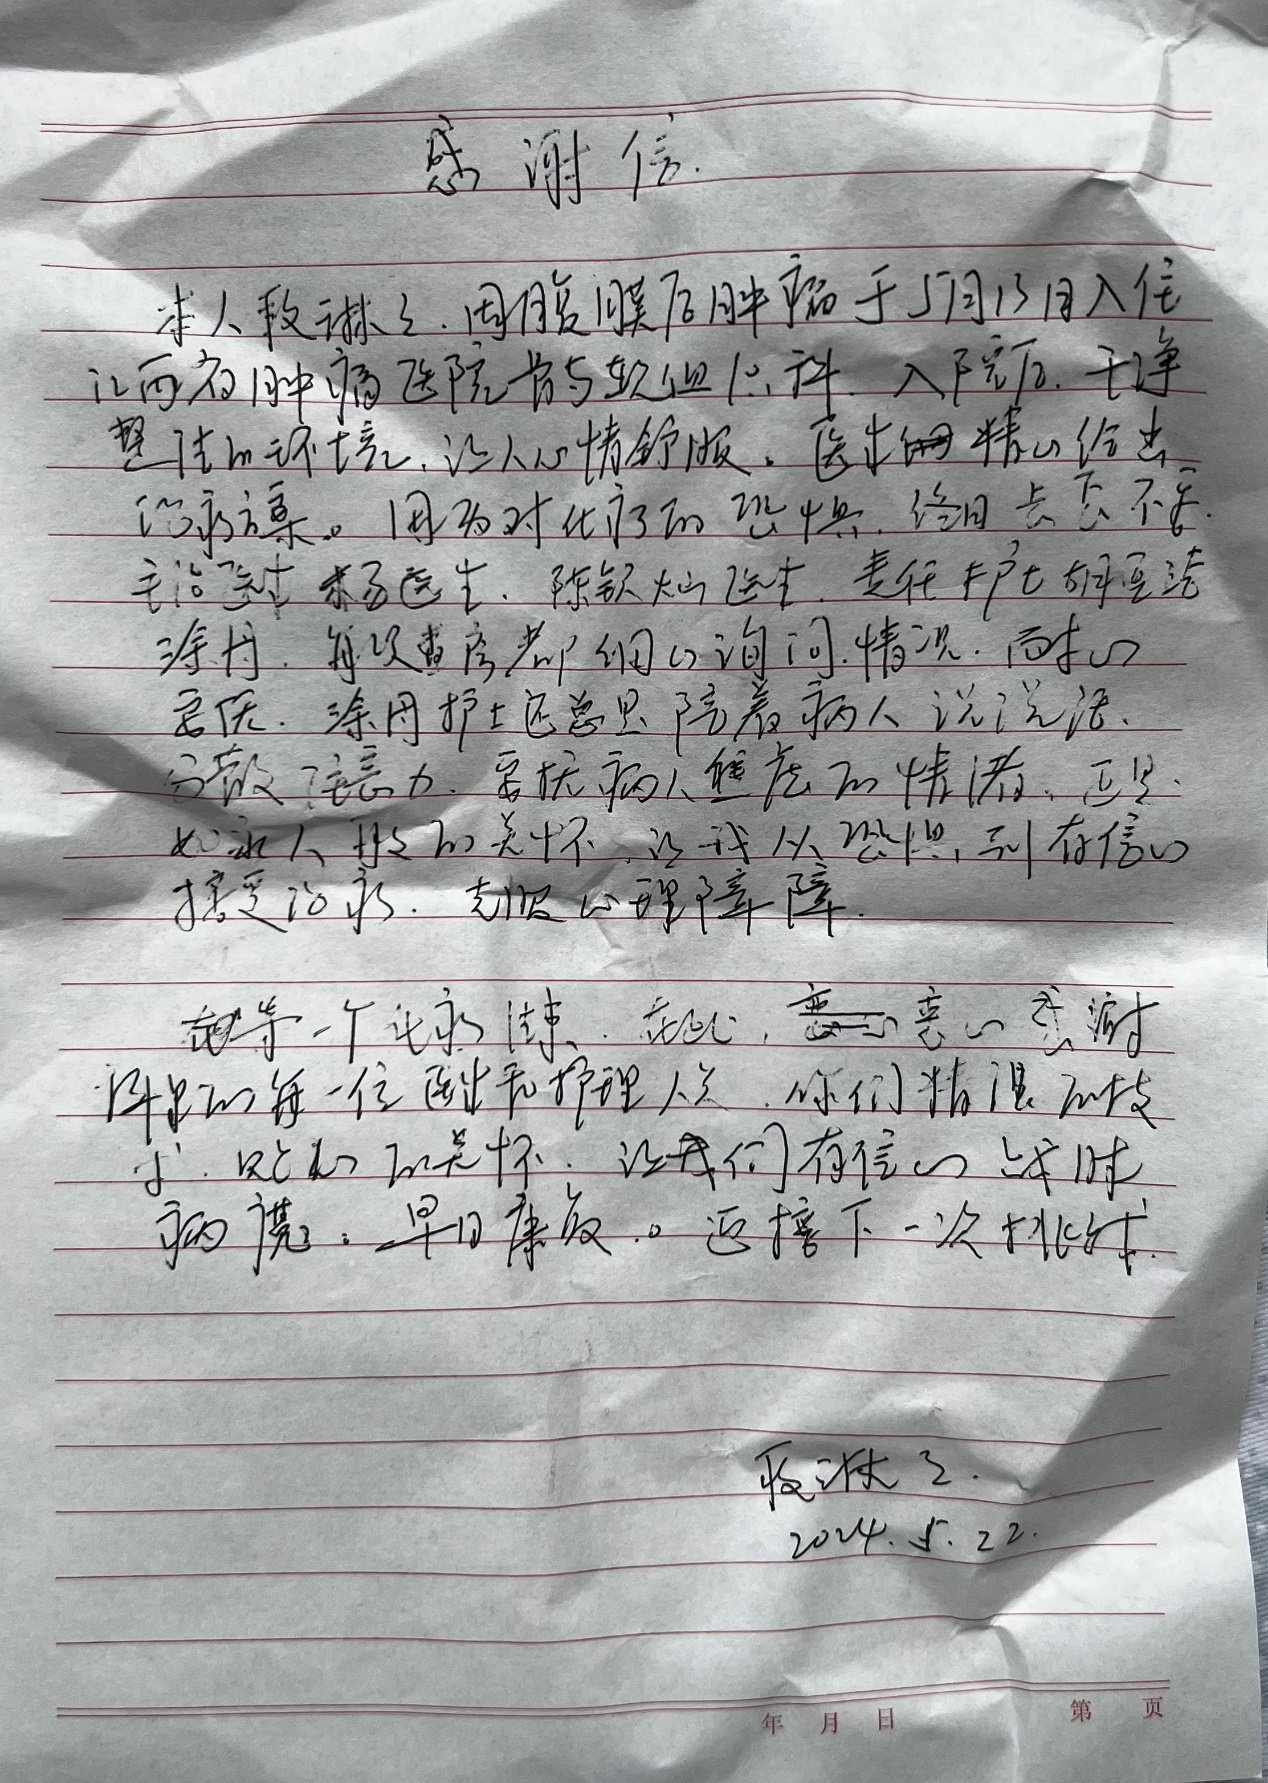 感谢信.
本人敖淋之.因腹膜后肿瘤于5月13日入住
江西省肿瘤医院骨与软组织科.入院后.干净
整洁的环境,让人心情舒服。医生精心给出
治疗方案。因为对化疗的恐惧.终日忐忑不安.
主治医生杨医生.陈钦灿医生.责任护士
涂丹.每次查房都细心询问情况.耐心
安抚.涂丹护士还总是陪着病人说说话.
分散注意力.安抚病人焦虑的情绪.正是.
如家人般的关怀.让我从恐惧,到有信心
接受治疗.克服心理障障.
第一个化疗结束.在此,衷心感谢
科里的每一位医生和护理人员.你们精湛的技
术.贴心的关怀.让我们有信心战胜
病魔.早日康复。迎接下一次挑战.
敖淋之.
2024.5.22.
年 月 日 第 页